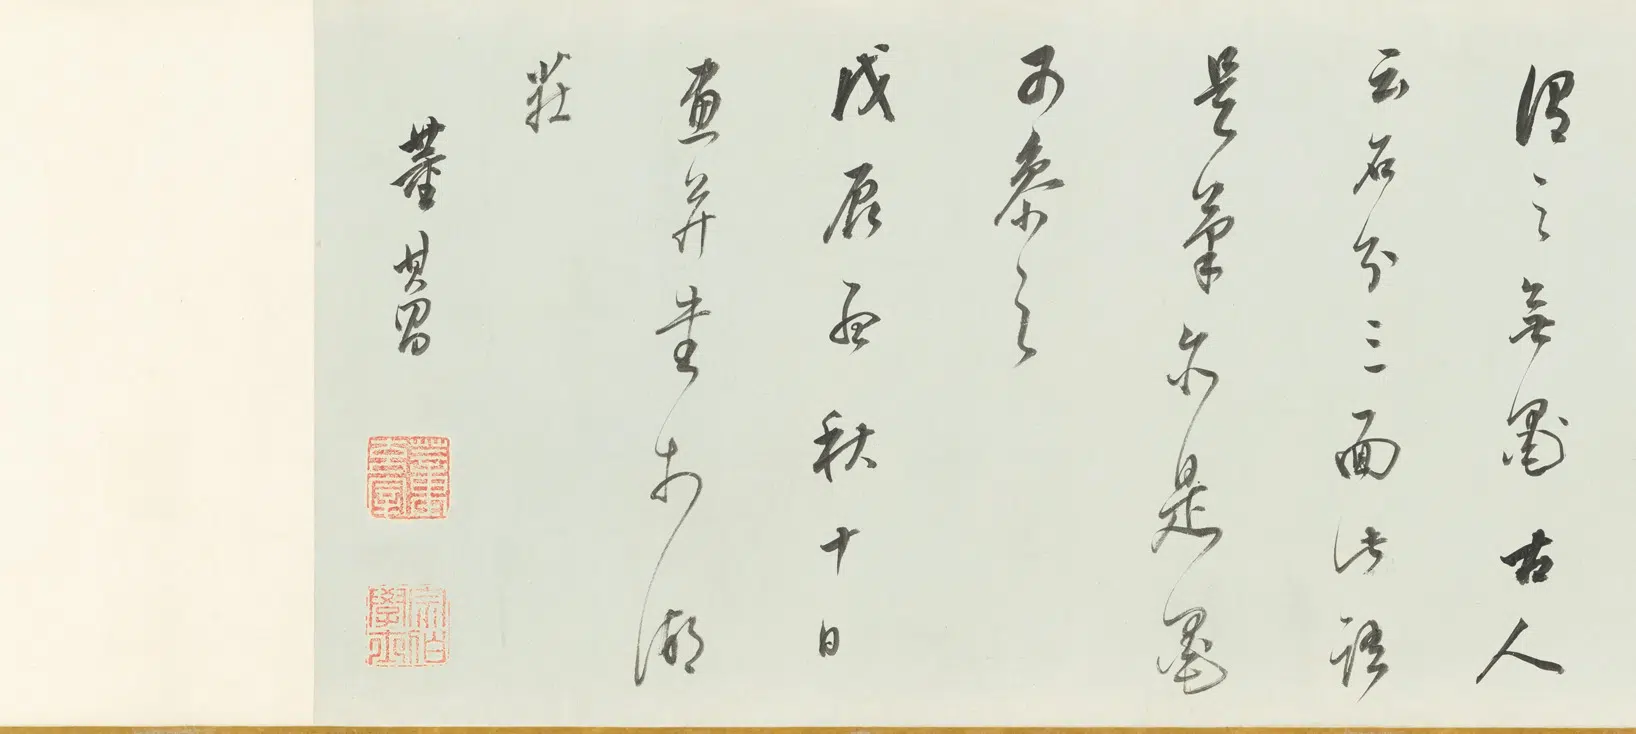 謂之無墨古人
云石分三面此語
是筆亦是墨
可參之
戊辰秋十日
畫并書於湖
莊
董其昌
宗伯學士